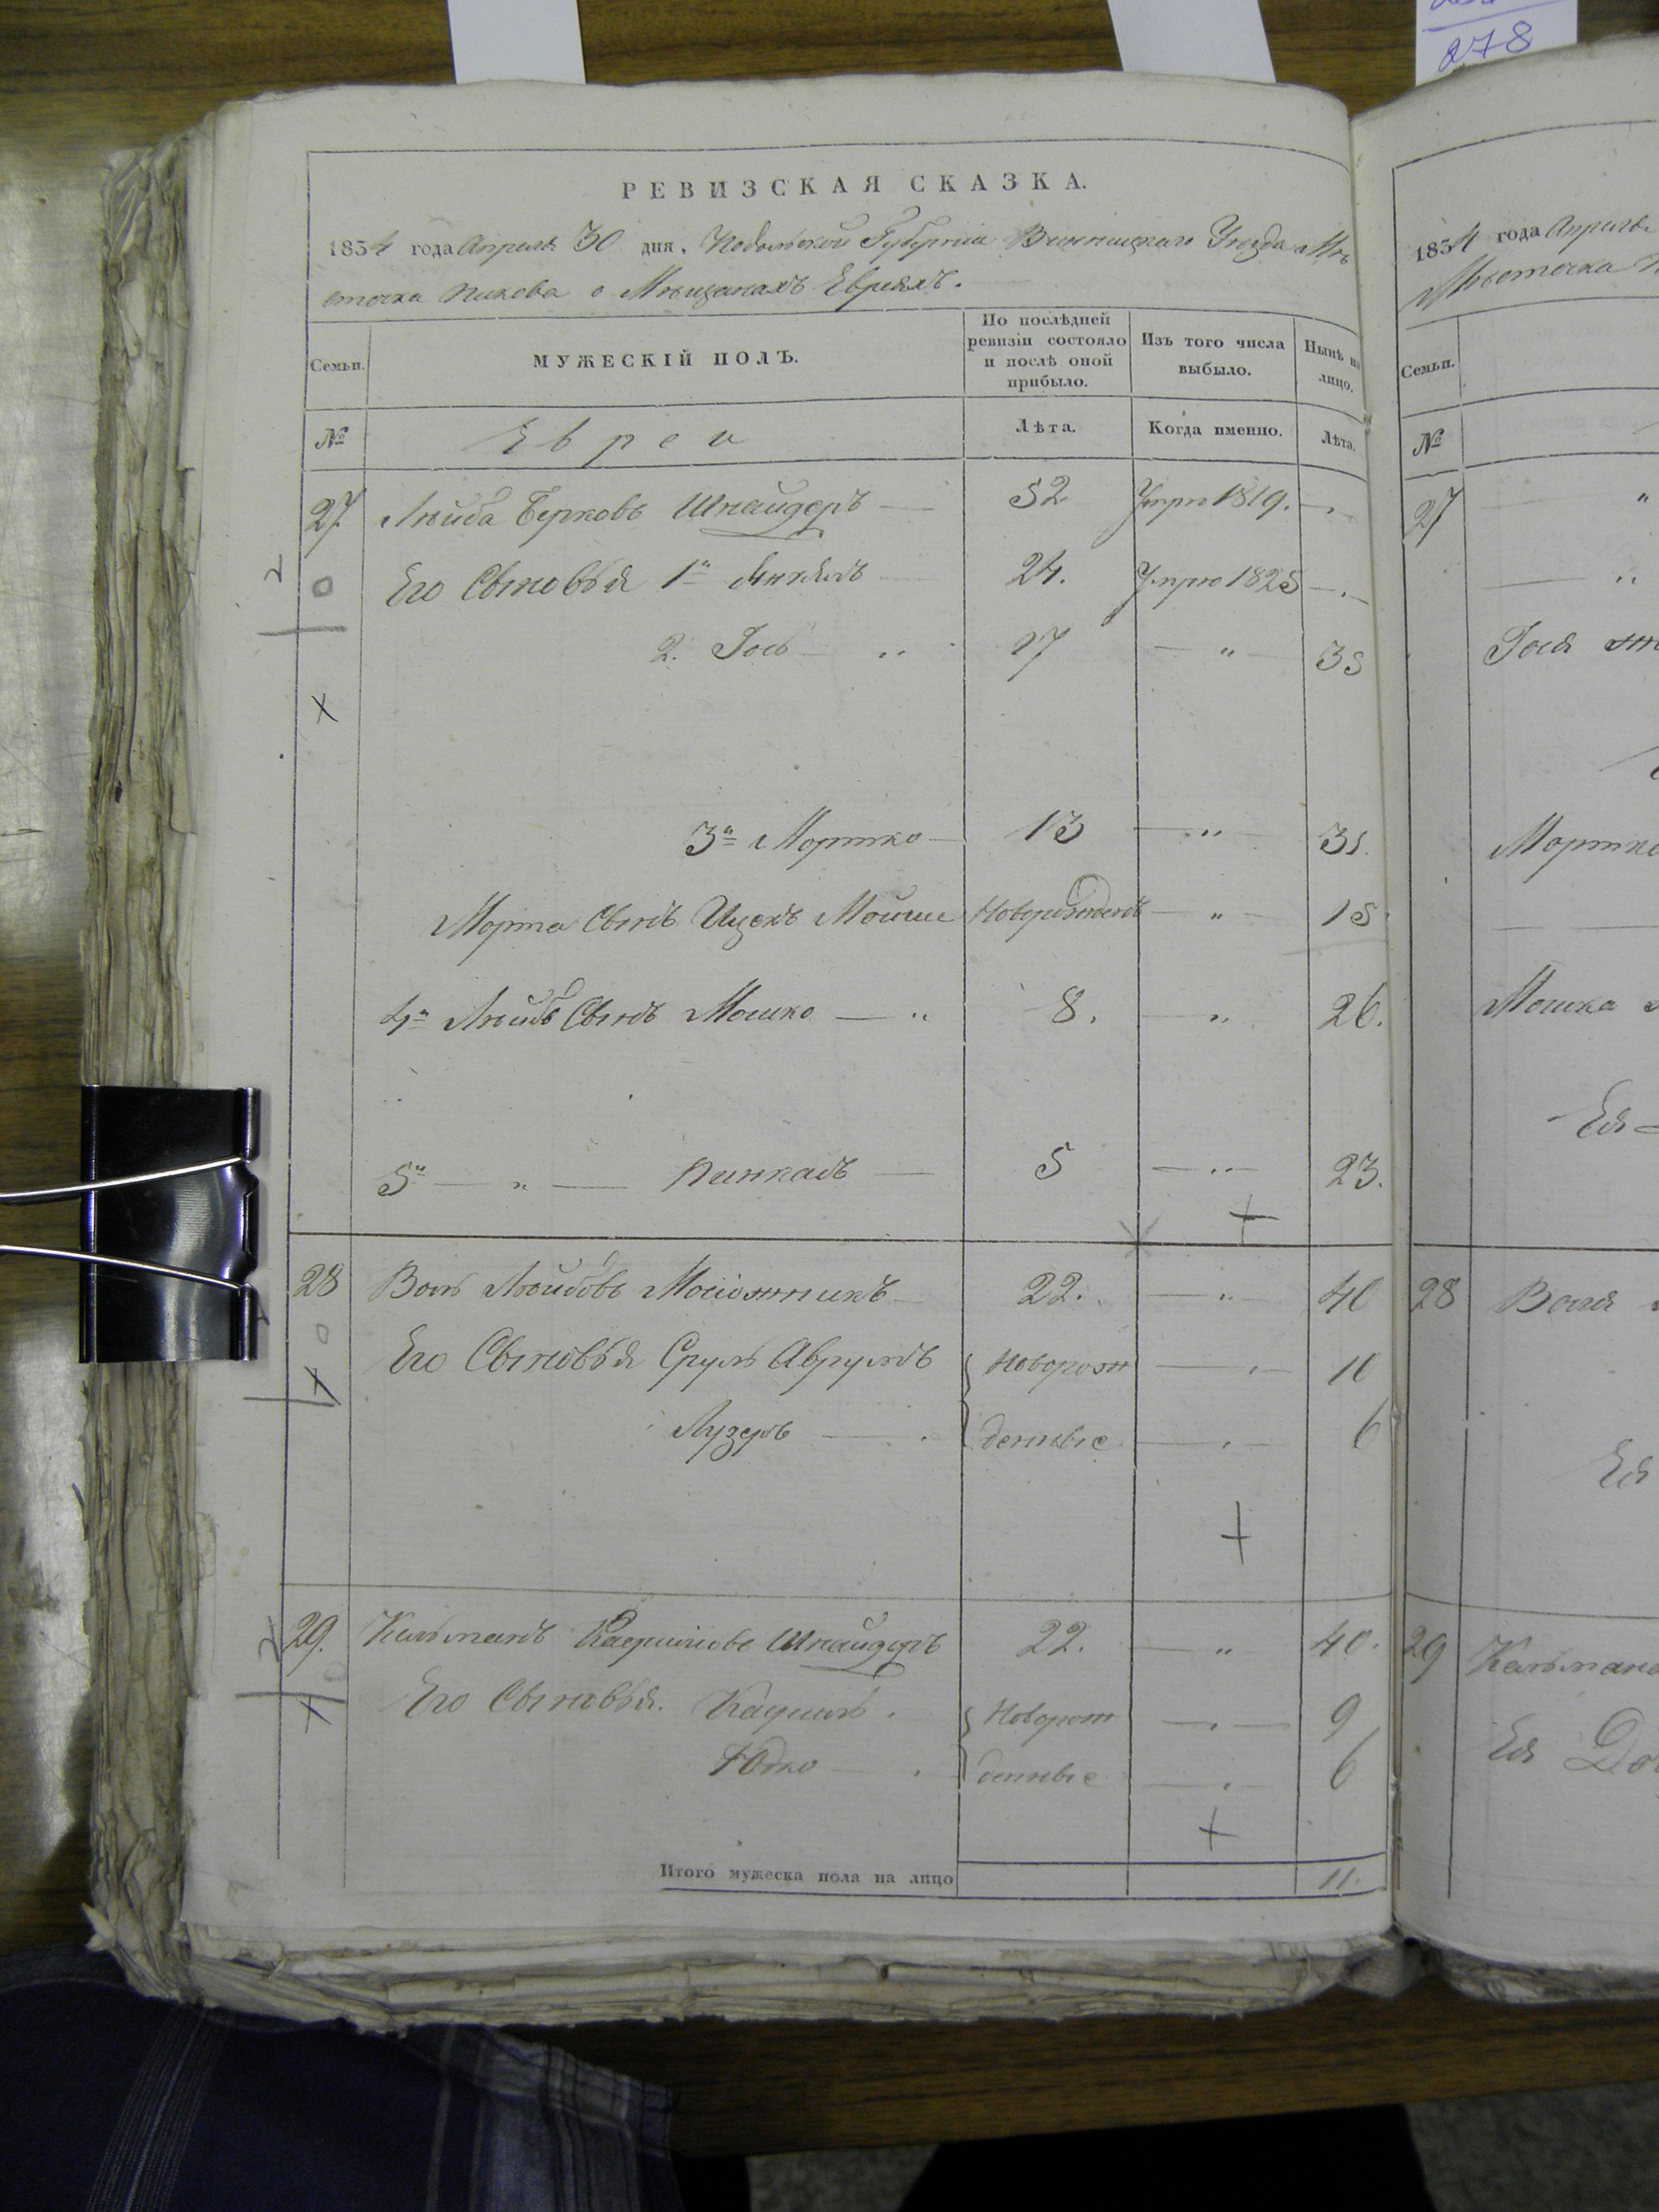 278
РЕВИЗСКАЯ СКАЗКА.
1834 года Апреля 30 дня, Подольской Губернии Винницкаго Уезда Мѣ
сточка Пикова о Мѣщанахъ Евреяхъ.
Семьи.
МУЖЕСКІЙ ПОЛЪ.
По послѣдней ревизіи состояло и послѣ оной прибыло.
Изъ того числа выбыло.
Нынѣ на лицо.
№
Евреи
Лѣта.
Когда именно.
Лѣта.
27 Лейба Берковъ Шнайдеръ 52 Умре 1819.
Его Сыновья 1й 24. Умре 1825
2. Гось 17 " 35
3й Мортко 13 " 31.
Морта Сынъ Ицекъ Мойше Новорожденъ " 15
4й Лейбы Сынъ Мошко " 8. " 26.
5й " Пинкасъ 5 " 23.
28 Воль Лейбовъ Мосіожникъ 22. " 40
Его Сыновья Сруль Аврумъ Новорож 10
Лузеръ денные 6
29. Кельманъ Шнайдеръ 22. " 40.
Его Сыновья. Кадишъ. Новорож 9
Юдко денные 6
Итого мужеска пола на лицо 11.
1834 года Апреля
Мѣсточка
Семьи.
№
27 "
Гося
Мортко
Мошка
Ея
28 Воля
Ея
29 Кельмана
Ея